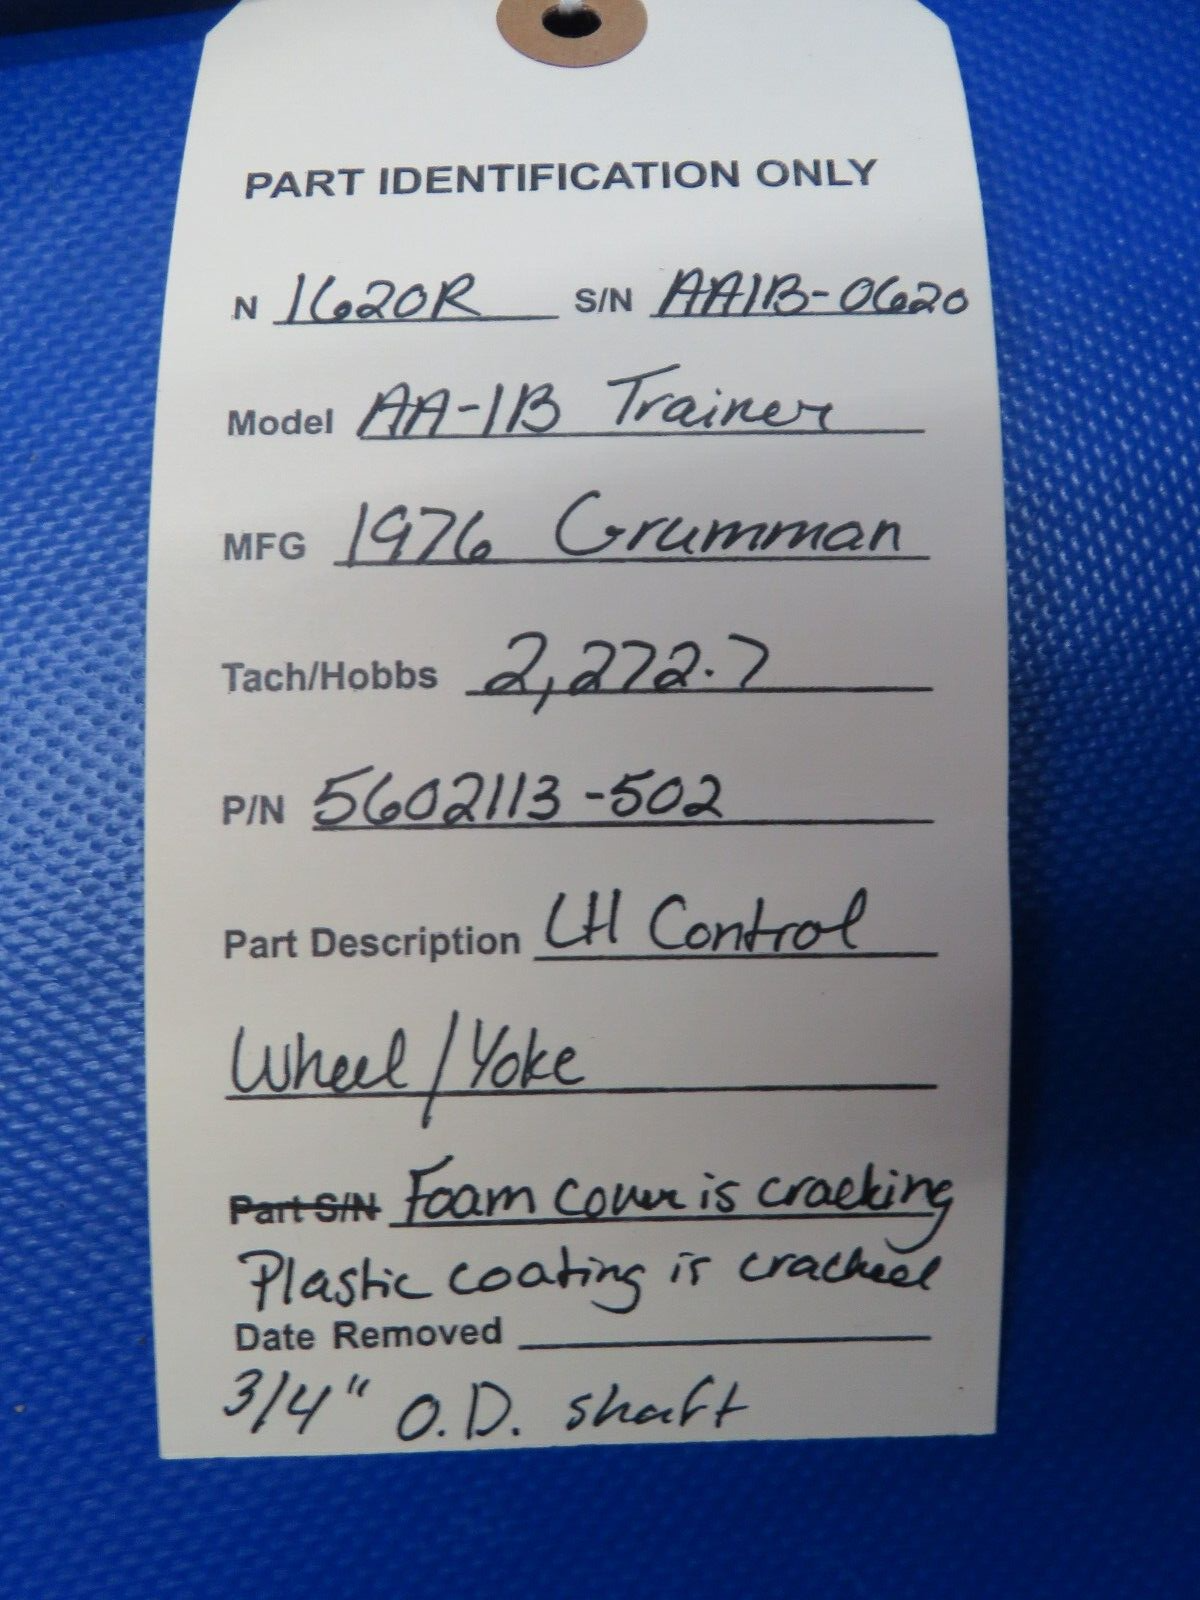 PART IDENTIFICATION ONLY
N 1620R S/N AA1B-0620
Model AA-1B Trainer
MFG 1976 Grumman
Tach/Hobbs 2,272.7
P/N 5602113-502
Part Description LH Control
Wheel/Yoke
Part S/N Foam cover is cracking
Plastic coating is cracked
Date Removed
3/4" O.D. shaft